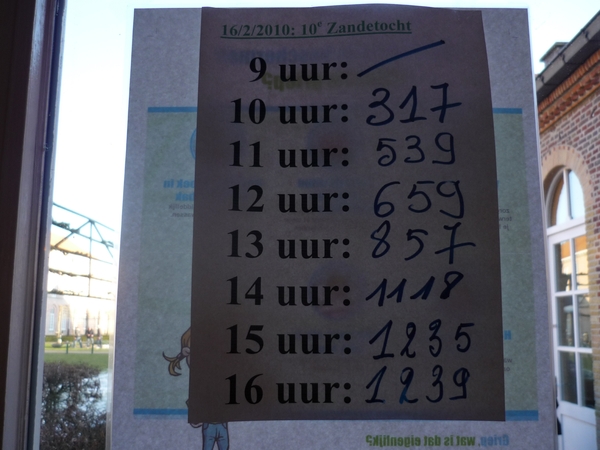 16/2/2010: 10e Zandetocht
9 uur: /
10 uur: 317
11 uur: 539
12 uur: 659
13 uur: 857
14 uur: 1118
15 uur: 1235
16 uur: 1239
Erieg, wat is dat eigenlijk?